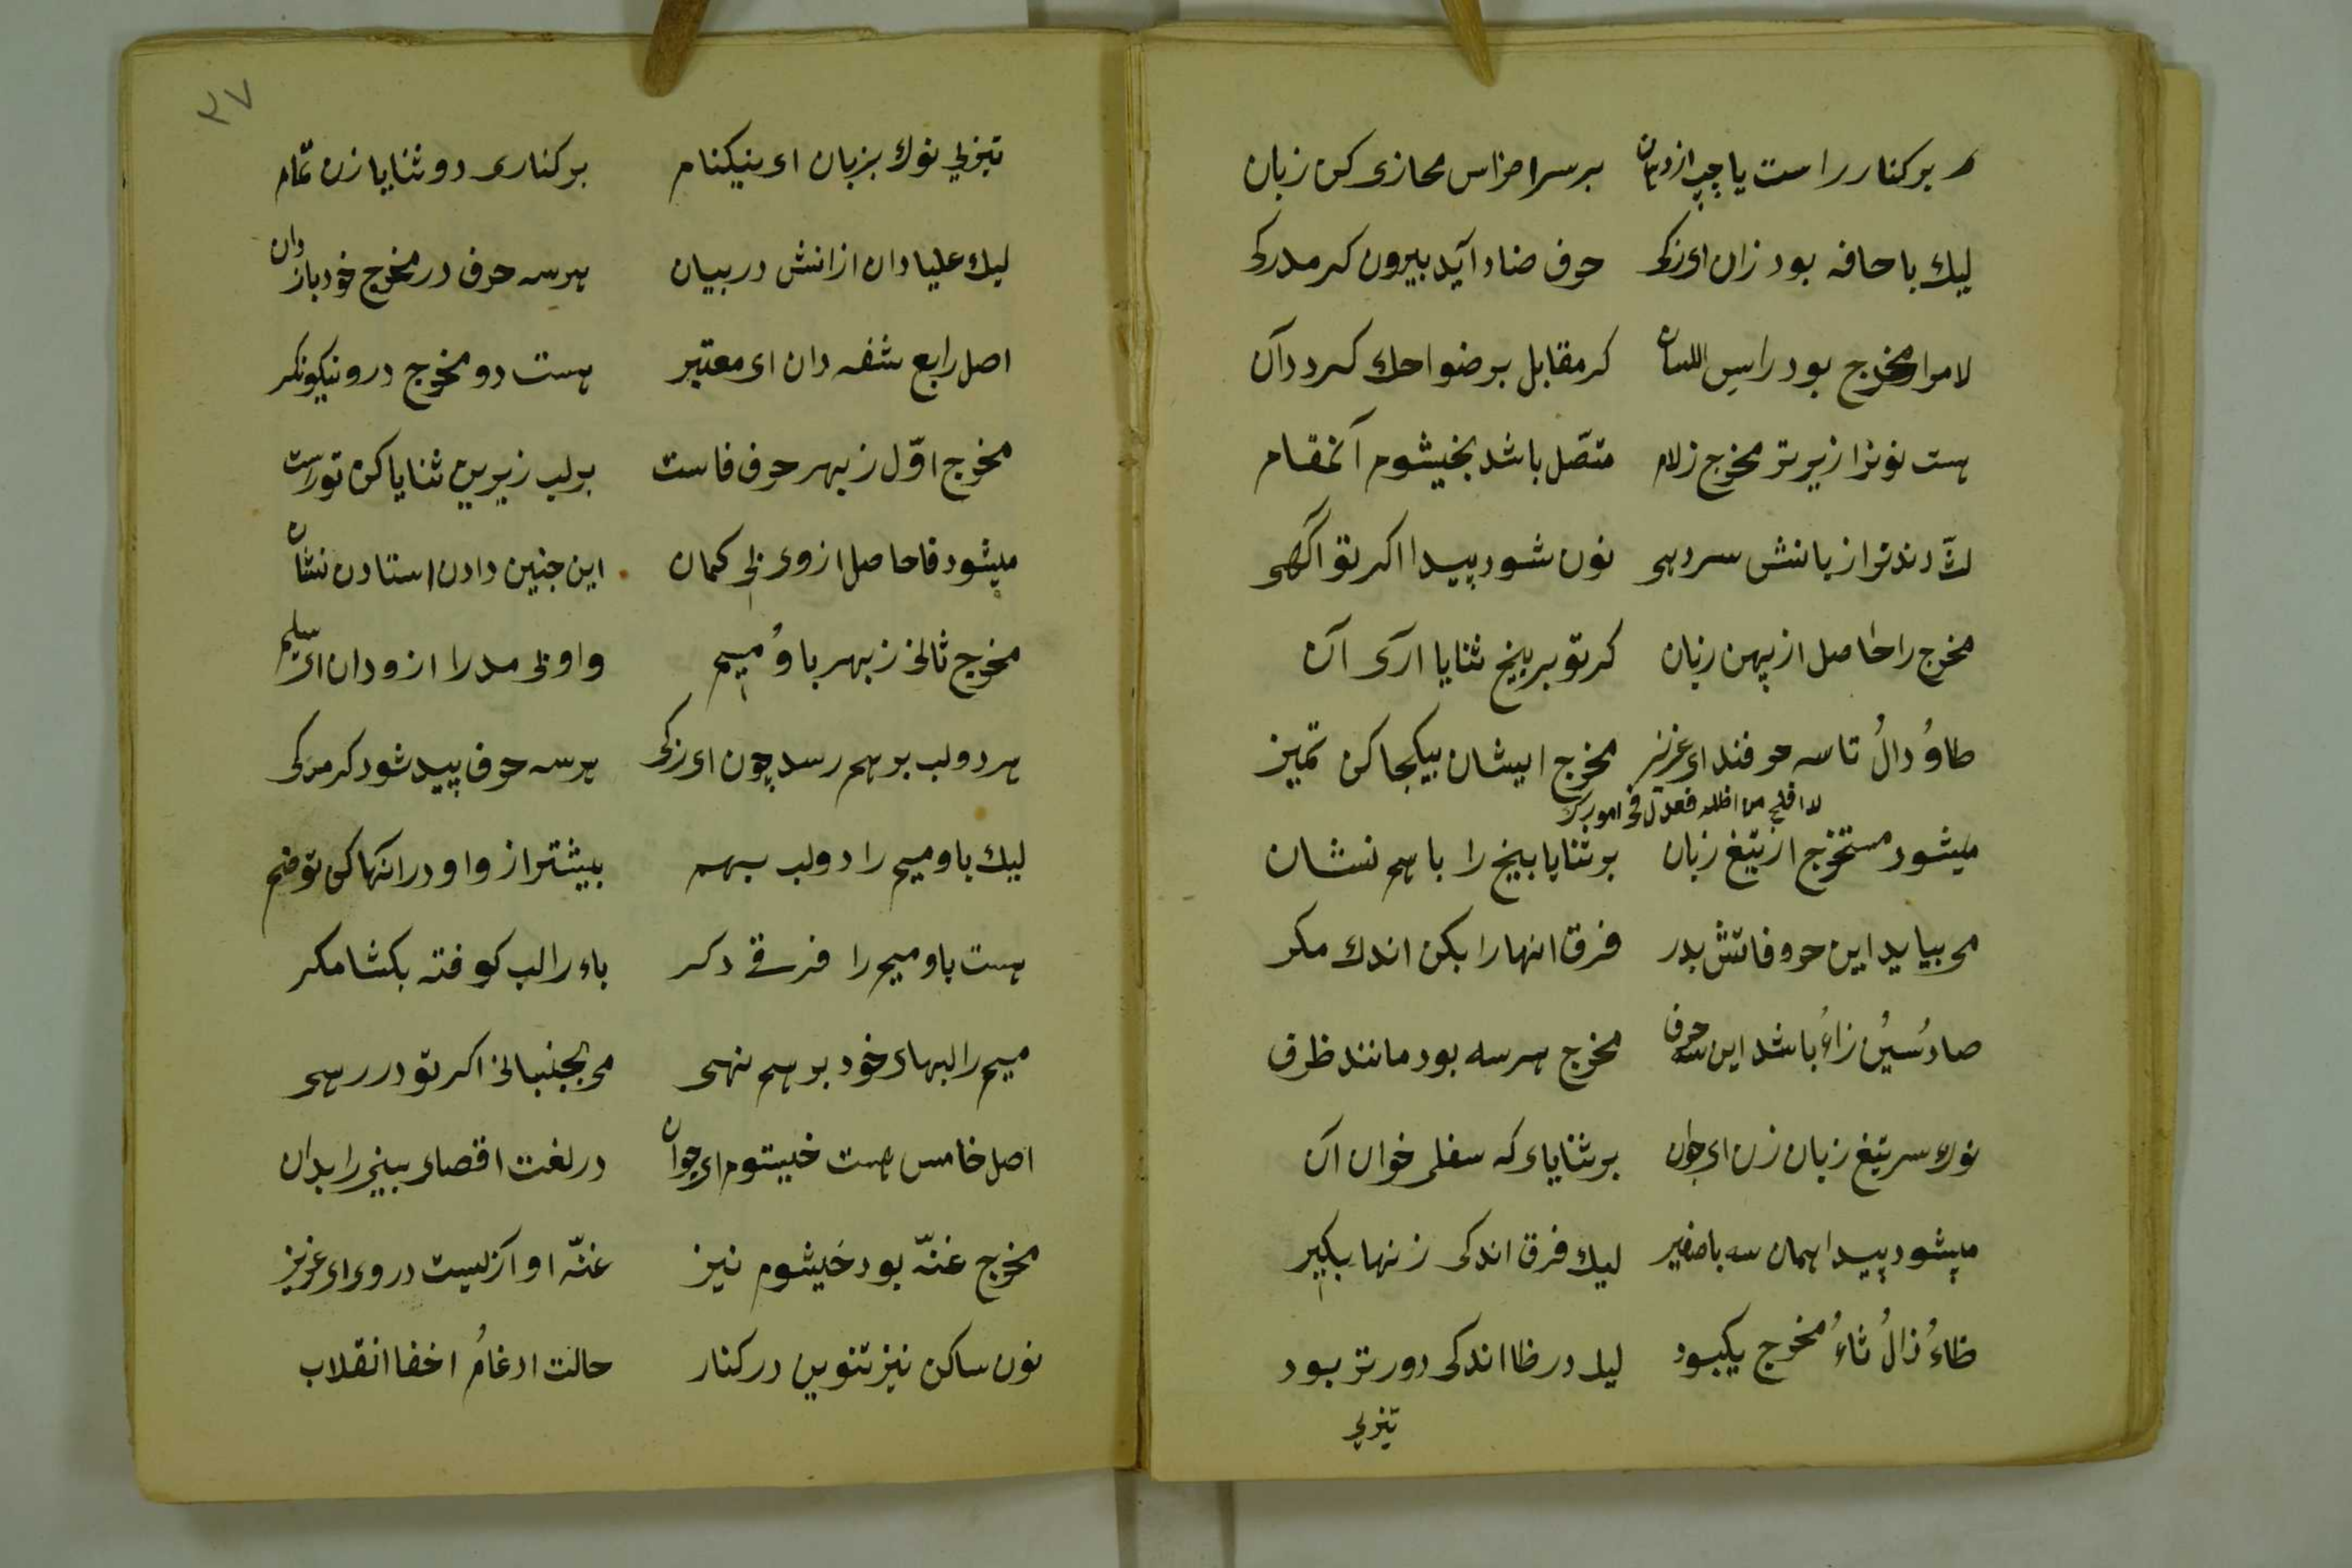 بركنار راست يا چپ از دهان برسر اضراس محازى كن زبان
ليك با حافه بود زان اى زكى حرف ضاد آيد بيرون كر مدركى
لامرا مخرج بود راس اللسان كر مقابل بر ضواحك كردد آن
هست نونرا زيرتر مخرج زلام متصّل باشد بخيشوم آنمقام
نون شود پيدا اكر تو آگهى
مخرج را حاصل از پهن زبان كر تو بر بيخ ثنايا آرى آن
طاوُ دالُ تا سه حرفند اى عزيز مخرج ايشان بيكجا كن تميز
ميشود مستخرج از تيغ زبان بر ثنايا بيخ را باهم نشان
مى بيايد اين حروفاتش بدر فرق انها را بكن اندك مكر
صادُ سينُ زاءُ باشد اين سه حرف مخرج هر سه بود مانند ظرف
نوك سر تيغ زبان زن اى جوان بر ثناياء كه سفلى خوان آن
ميشود پيدا همان سه با صفير ليك فرق اندكى زنها بكير
ظاءُ ذالُ ثاءُ مخرج يكبود ليك در ظا اندكى دورتر بود
تيزيى
٣٧
تيزيى نوك بزبان اى نيكنام بر كنارى دو ثنايا زن تمّام
ليك عليا دان ازانش در بيان هر سه حرف در مخرج خود باز دان
اصل رابع شفه دان اى معتبر هست دو مخرج درو نيكو نكر
مخرج اوّل ز بهر حرف فاست بر لب زيرين ثنايا كن تو راست
ميشود فا حاصل از وى بى كمان اين چنين دادن استادن نشان
مخرج ثانى ز بهر با وُ ميم واو بى مد را ازو دان اى سليم
هر دو لب بر هم رسد چون اى زكى هر سه حرف پيد شود كر مدركى
ليك با و ميم را دو لب بهم بيشتر از واو در انها كن تو ضم
هست با و ميم را فرقے دكر باء را لب كوفته بكشا مكر
ميم را لبهاى خود بر هم نهى مى بجنبانى اكر تو در رهى
اصل خامس هست خيشوم اى جوان در لغت اقصاى بينى را بدان
مخرج غنّه بود خيشوم نيز غنّه اوآزليست در وى اى عزيز
نون ساكن نيز تنوين در كنار حالت ادغامُ اخفا انقلاب